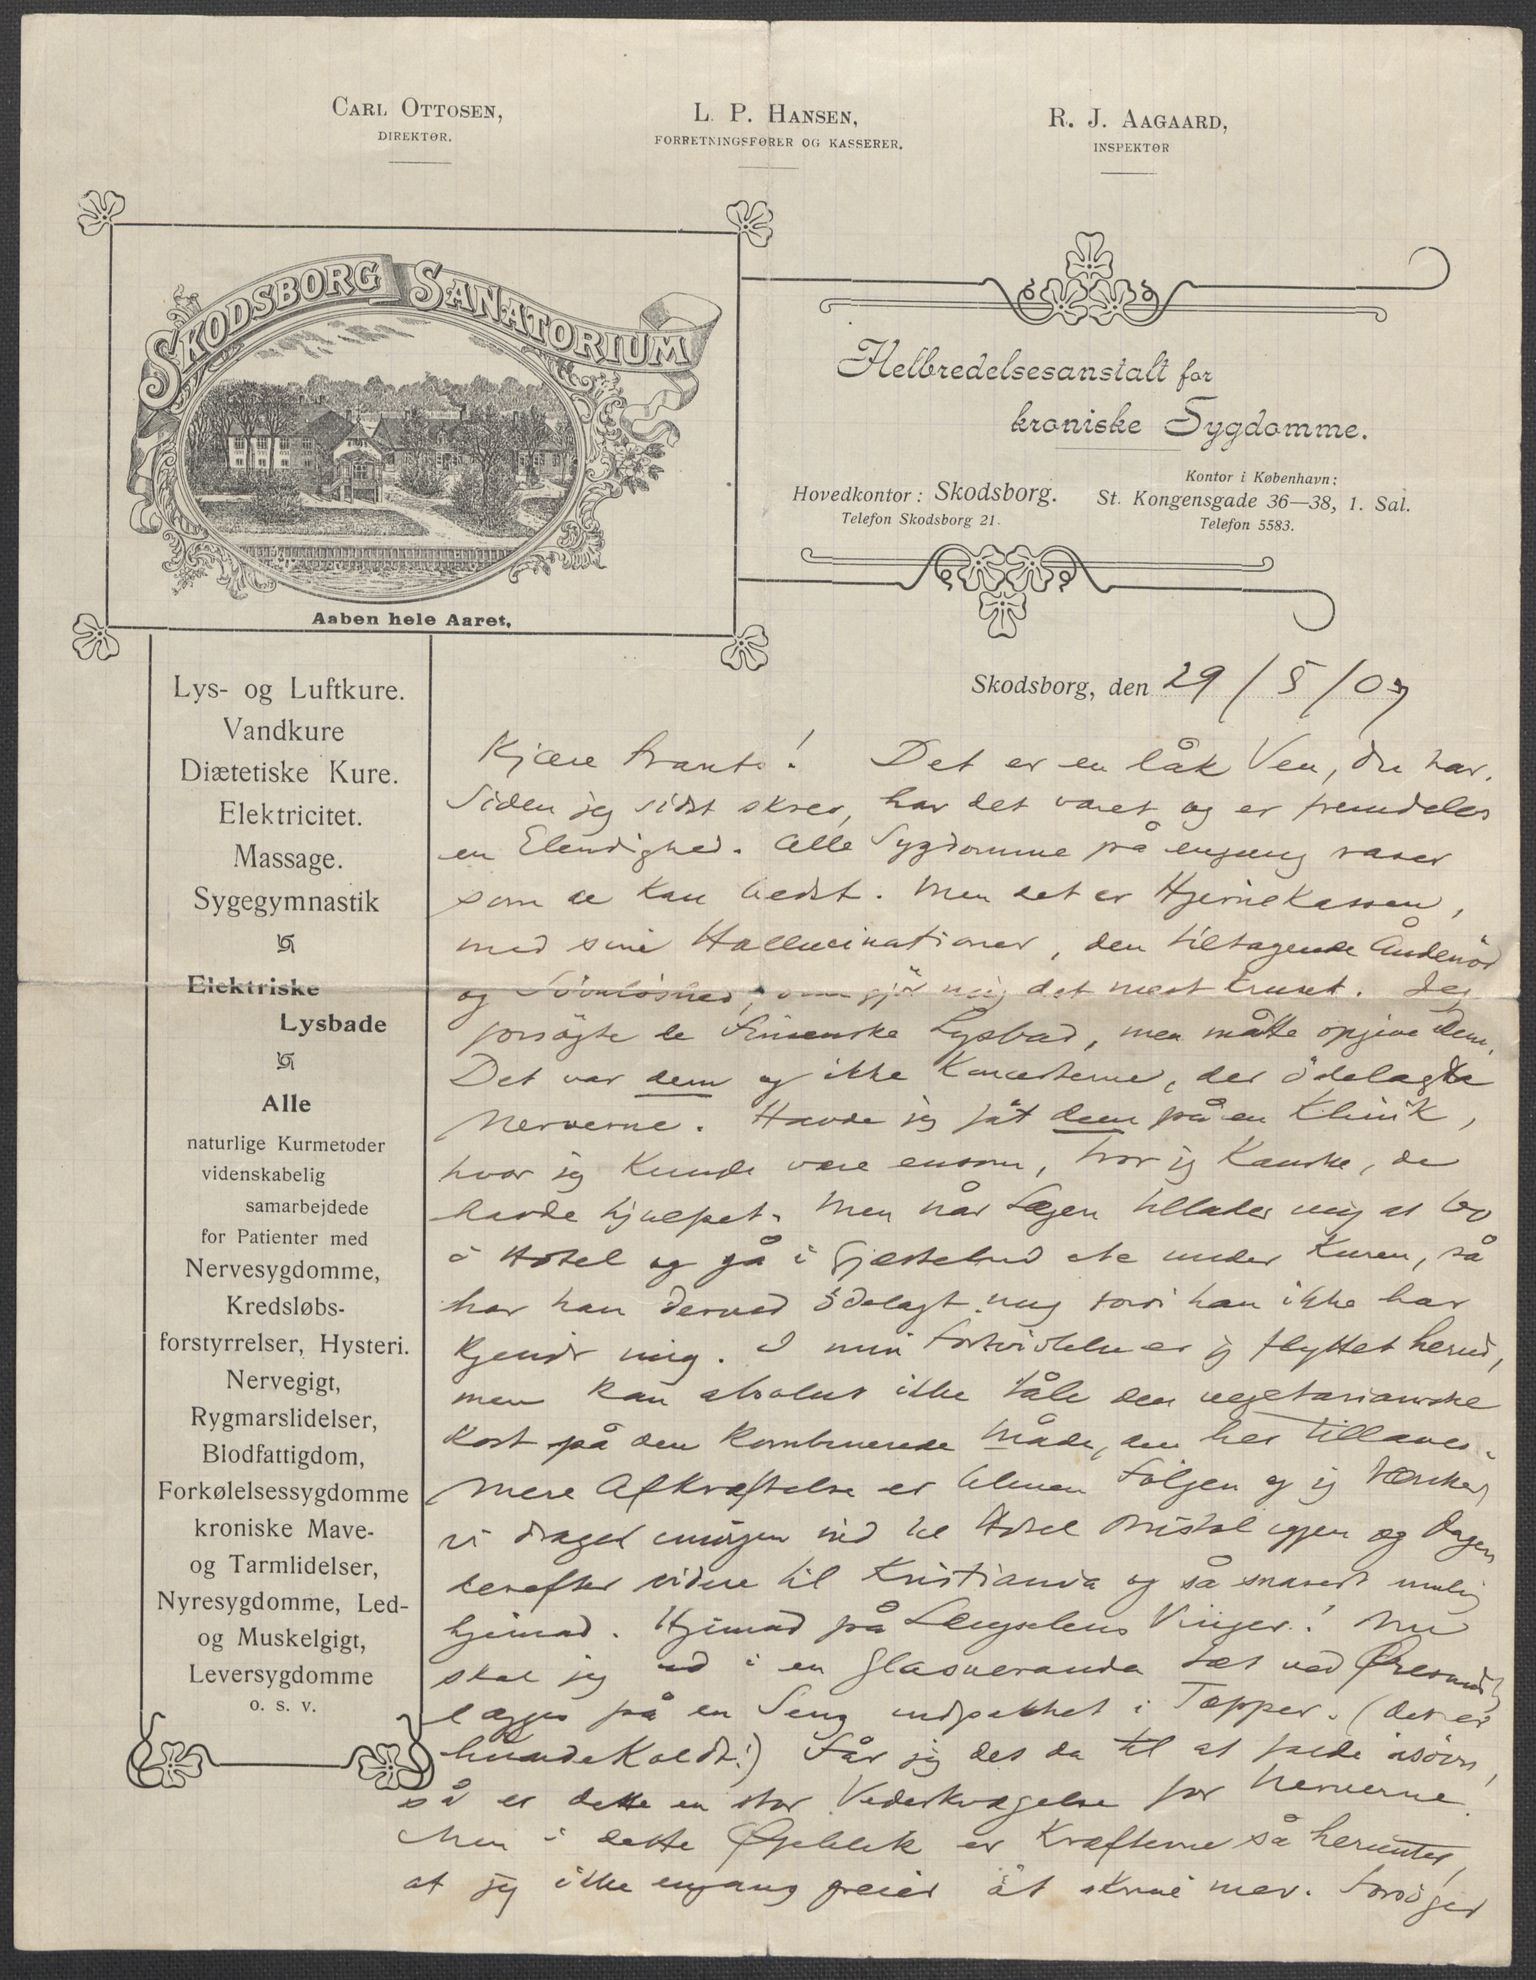 CARL OTTOSEN,
DIREKTØR.
L. P. HANSEN,
FORRETNINGSFØRER OG KASSERER.
R. J. AAGAARD,
INSPEKTØR
SKODSBORG SANATORIUM
Aaben hele Aaret.
Helbredelsesanstalt for
kroniske Sygdomme.
Hovedkontor: Skodsborg.
Telefon Skodsborg 21.
Kontor i København:
St. Kongensgade 36—38, 1. Sal.
Telefon 5583.
Lys- og Luftkure.
Vandkure
Diætetiske Kure.
Elektricitet.
Massage.
Sygegymnastik
Elektriske
Lysbade
Alle
naturlige Kurmetoder
videnskabelig
samarbejdede
for Patienter med
Nervesygdomme,
Kredsløbs-
forstyrrelser, Hysteri.
Nervegigt,
Rygmarslidelser,
Blodfattigdom,
Forkølelsessygdomme
kroniske Mave-
og Tarmlidelser,
Nyresygdomme, Led-
og Muskelgigt,
Leversygdomme
o. s. v.
Skodsborg, den 29/5/07
Kjære Frants! Det er en låk Ven, du har.
Siden jeg sidst skrev, har det været og er fremdeles
en Elendighed. Alle Sygdomme på engang raser
som de kan bedst. Men det er Hjernekassen,
med sine Hallucinationer, den tiltagende Åndenød
og Søvnløshed, som gjör mig det mest truset. Jeg
forsögte de Finsenske Lysbad, men måtte opgive dem.
Det var dem og ikke Koncerterne, der ödelagde
Nerverne. Havde jeg fåt dem på en Klinik,
hvor jeg kunde være ensom, tror jeg kanske, de
havde hjulpet. Men når Lægen tillader mig at bo
i Hotel og gå i Gjæstebud etc under Kuren, så
har han derved ödelagt mig fordi han ikke har
kjendt mig. I min Fortvivlelse er jg flyttet herud,
men kan absolut ikke tåle den vegetarianske
Kost på den kombinerede Måde, den her tillaves.
Mere Afkræftelse er bleven Fölgen og jg tænker,
vi drager imorgen ind til Hotel Bristol igjen og Dagen
derefter videre til Kristiania og så snarest mulig
hjemad. Hjemad på Længselens Vinger! Nu
skal jeg ud i en Glasveranda tæt ved Øresund,
lægges på en Seng indpakket i Tæpper. (det er
hundekoldt!) Får jeg det da til at falde isövn,
så er dette en stor Vederkvægelse for Nerverne.
Men i dette Øjeblik er Kræfterne så herunter,
at jeg ikke engang greier at skrive mer. Forsöger